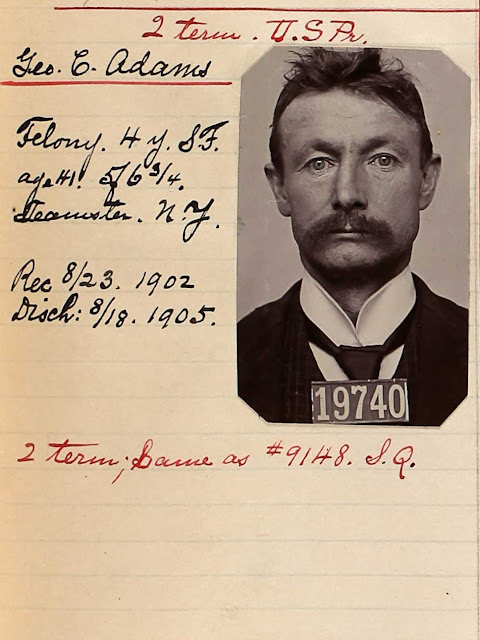 2 term. U.S Pr.
Geo. C. Adams
Felony. 4 y. S.F.
age 41. 5/6 3/4.
Teamster. N.Y.
Rec 8/23. 1902
Disch: 8/18. 1905.
19740
2 term; Same as #9148. S.Q.